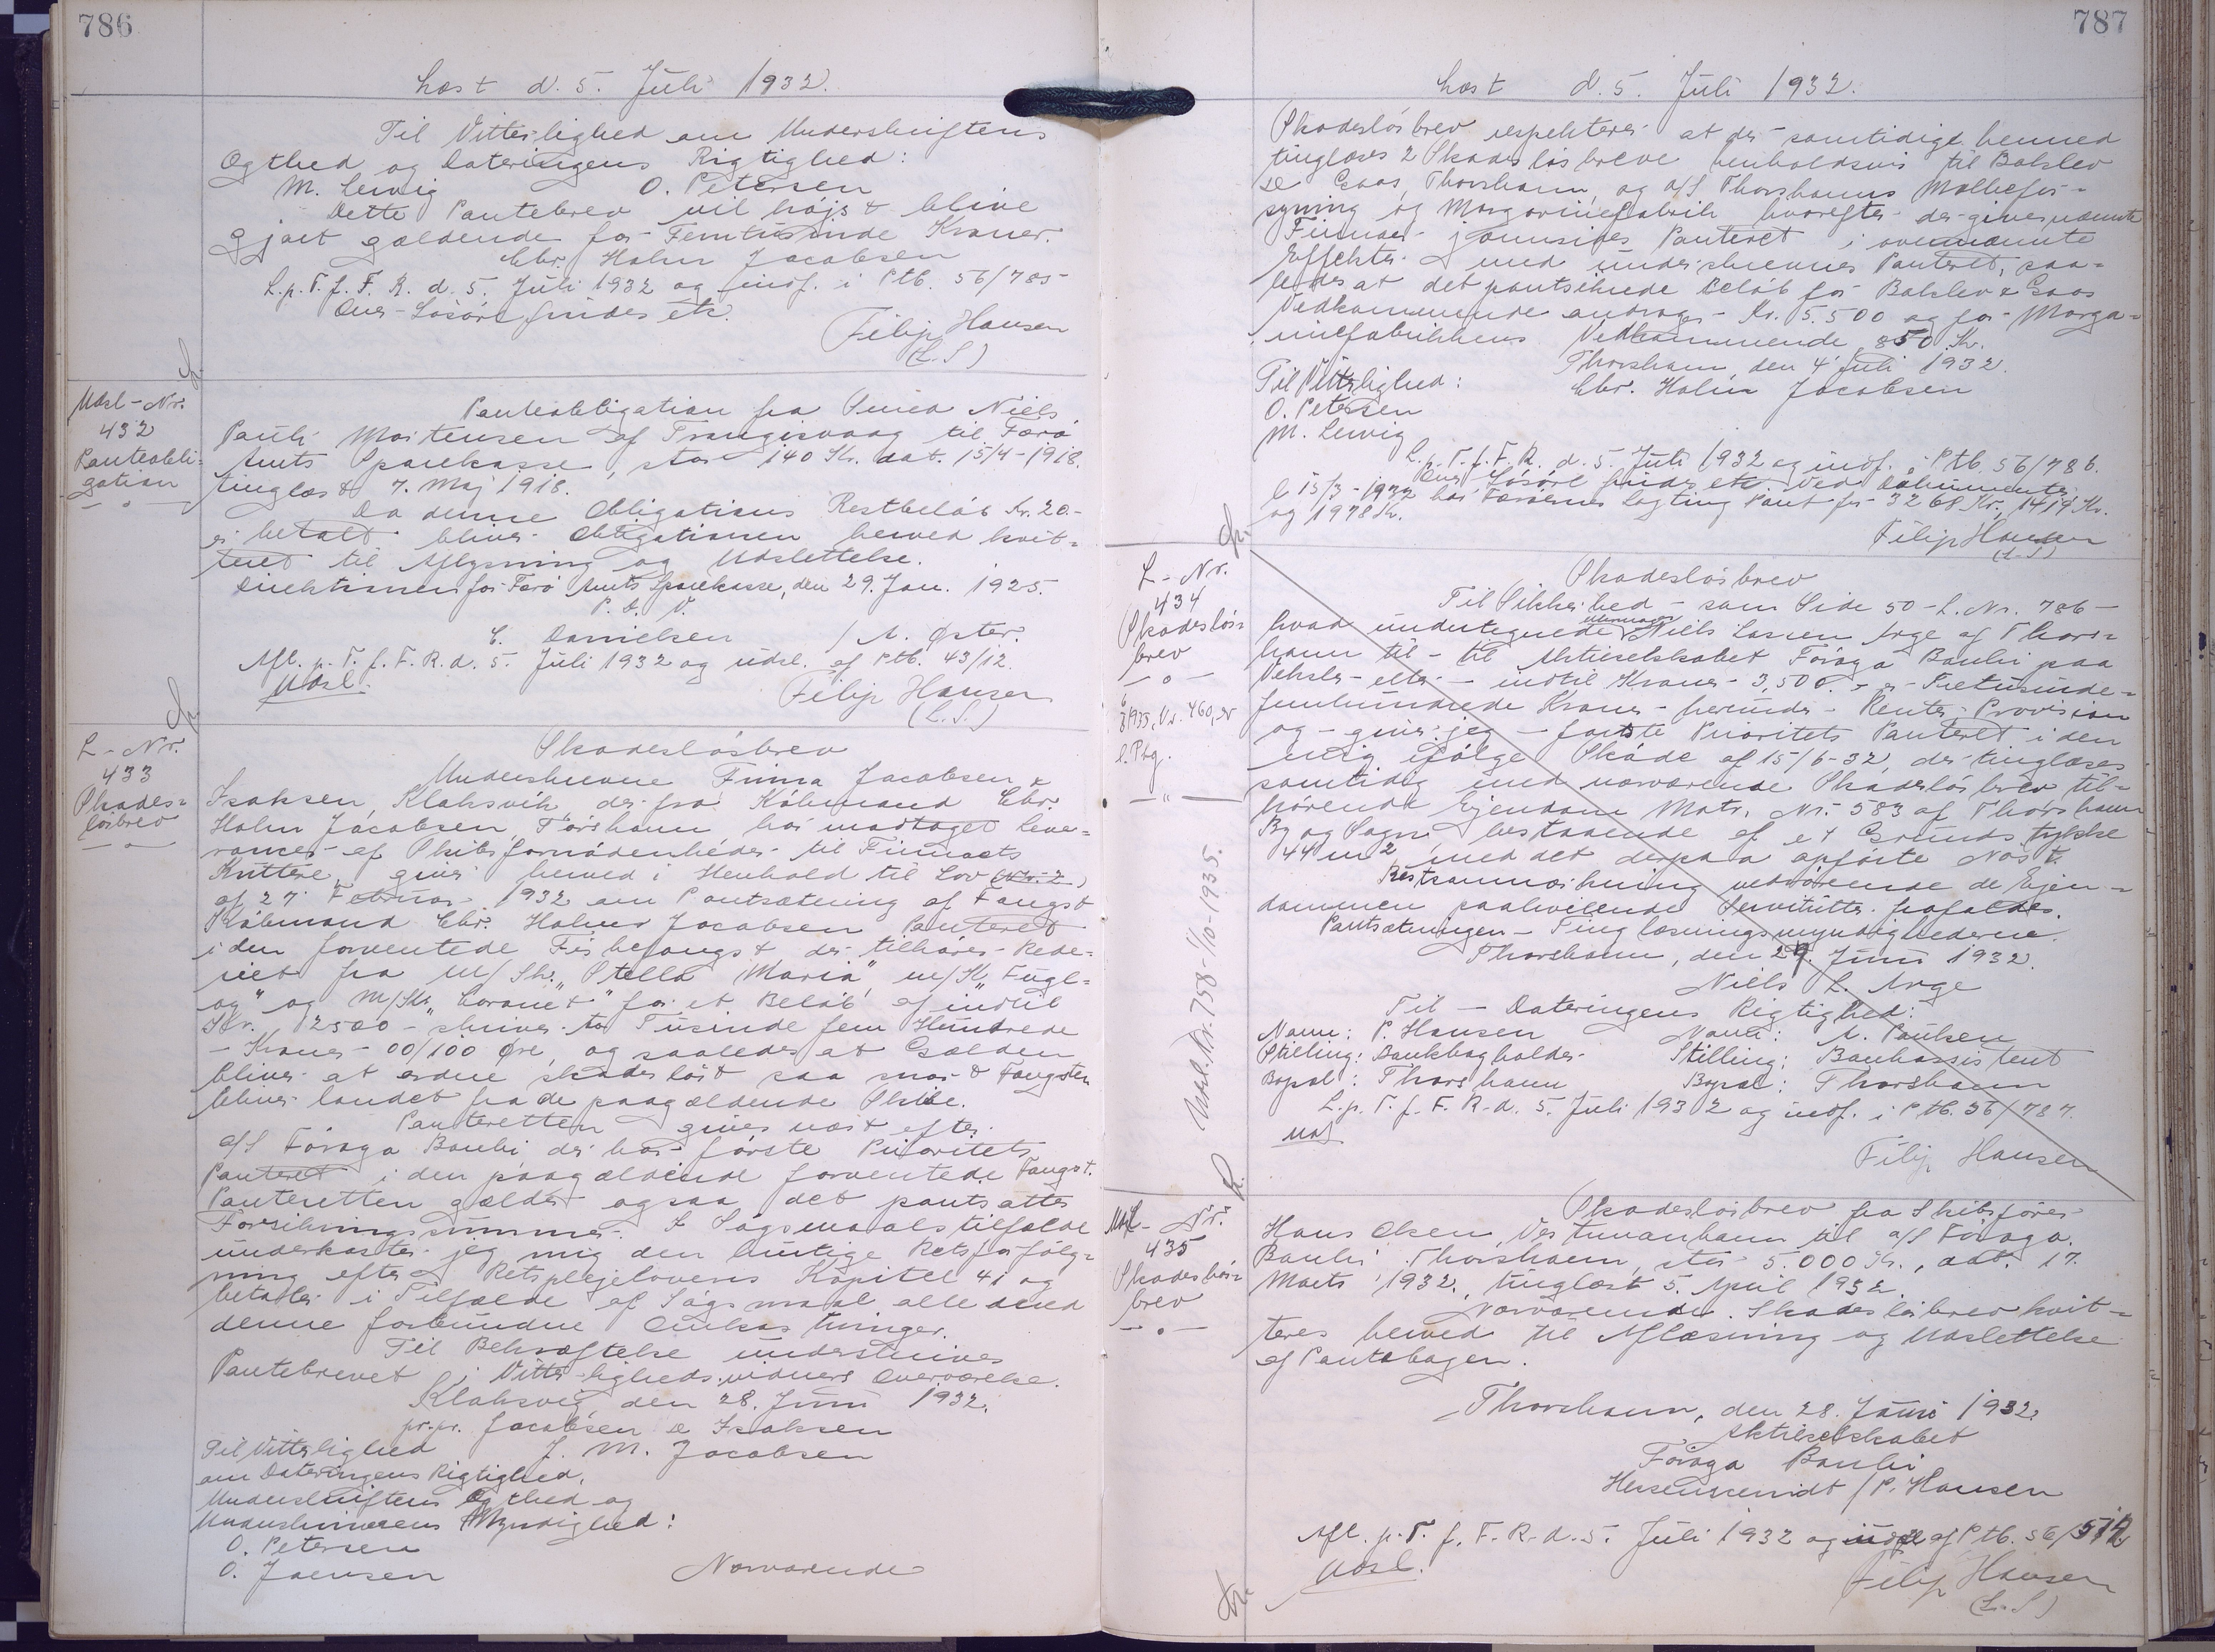 786
Læst d. 5. Juli 1932.
Til Vitterlighed om Underskriftens
Ægthed og Dateringens Rigtighed:
M. Lervig O. Petersen
Dette Pantebrev vil højst blive
gjort gældende for Femtusinde Kroner.
Chr. Holm Jacobsen
L.p.T.f.F.R. d. 5. Juli 1932 og indf. i Ptb. 56/785
Over Løsøre findes etc.
Filip Hansen
(L.S)
Udsl-Nr.
432
Panteobli-
gation
—o—
Panteobligation fra Smed Niels
Pauli Mortensen af Trangisvaag til Færø
Amts Sparekasse, stor 140 Kr. dat. 15/4-1918.
tinglæst 7. Maj 1918.
Da denne Obligations Restbeløb Kr. 20.-
er betalt bliver Obligationen herved kvit-
teret til Aflysning og Udslettelse.
Direktionen for Færø Amts Sparekasse, den 29. Jan. 1925.
P. D. V.
C. Danielsen / A. Øster.
Afl. p. T. f. F. R. d. 5. Juli 1932 og udsl. af Ptb. 43/12.
Udsl.
Filip Hansen
(L.S.)
L-Nr.
433
Skades-
løsbrev
—o—
Skadesløsbrev
Underskrevne Firma Jacobsen &
Isaksen, Klaksvik, der fra Købmand Chr.
Holm Jacobsen, Tórshavn har modtaget leve-
rancer af Skibsfornødenheder til Firmaets
Kuttere, giver herved i Henhold til Lov (Nr. 2)
af 27 Februar 1932 om Pantsætning af Fangst
Købmand Chr. Holm Jacobsen Panteret
i den forventede Fiskefangst der tilhører Rede-
riet fra M/Sk. "Stella Maria", M/Sk. "Fugl-
øy" og M/Sk. "Coronet" for et Beløb af indtil
Kr. 2500 - skriver to Tusinde fem Hundrede
- Kroner - 00/100 Øre, og saaledes at Gælden
bliver at ordne skadesløst saa snart Fangsten
bliver landet fra de paagældende Skibe.
Panteretten gives næst efter
A/S Føroya Banki der har første Prioritets
Panteret i den paagældende forventede Fangst.
Panteretten gælder ogsaa det pantsattes
Forsikringssummer. I Søgsmaalstilfælde
underkaster jeg mig den hurtige Retsforfølg-
ning efter Retsplejelovens Kapitel 41 og
betaler i Tilfælde af Søgsmaal alle med
denne forbundne Omkostninger.
Til Bekræftelse underskrives
Pantebrevet i Vitterlighedsvidners Overværelse.
Klaksvig, den 28. Juni 1932.
pr.pr. Jacobsen & Isaksen
J. M. Jacobsen
Til Vitterlighed
om Dateringens Rigtighed,
Underskriftens Ægthed og
Underskriverens Myndighed:
O. Petersen
O. Joensen
Nærværende
787
Læst d. 5. Juli 1932.
Skadesløsbrev respekterer at der samtidigt hermed
tinglæses 2 Skadesløsbreve henholdsvis til Balslev
& Gaos, Thorshavn, og A/S Thorshavns Mælkefor-
syning og Margarinefabrik hvorefter der gives nævnte
Firmaer jævnsides Panteret i ovennævnte
Effekter med underskrevnes Panteret, saa-
ledes at det pantsikrede Beløb for Balslev & Gaos
Vedkommende andrager Kr. 5.500 og for Marga-
rinefabrikkens Vedkommende 850 Kr.
Thorshavn, den 4 Juli 1932.
Til Vitterlighed: Chr. Holm Jacobsen
O. Petersen
M. Lervig
L.p.T.f.F.R. d. 5 Juli 1932 og indf. i Ptb. 56/786.
Over Løsøre findes etc. Ved Dokumenter
l 15/3-1932 har Færøernes Lagting Pant for 3268 Kr., 1414 Kr.
og 1978 Kr.
Filip Hansen
(L.S)
L-Nr.
434
Skadesløs-
brev
—o—
1935, Nr. 460, er
l. Ptg.
—"—
Udsl. Nr. 758-1/10-1935.
Skadesløsbrev
Til Sikkerhed - som Side 50 - L. Nr. 786 -
hvad undertegnede Niels Lassen Arge af Thors-
havn til - til Aktieselskabet Føroya Banki paa
Veksler - eller - indtil Kroner - 3,500. - er - Tretusinde-
femhundrede Kroner - herunder - Renter - Provision
og - giver jeg - første Prioritets Panteret i den
mig ifølge Skøde af 15/6-32, der tinglæses
samtidig med nærværende Skadesløsbrev til-
hørende Ejendom Matr. Nr. 583 af Thorshavn
By og Sogn bestaaende af et Grundstykke
44 m² med det derpaa opførte Nøst.
Retsanmærkning vedrørende de Ejen-
dommen paahvilende Servitutter frafaldes.
Pantsætningen - Tinglæsningsmyndighederne.
Thorshavn, den 29. Juni 1932.
Niels L. Arge
Til - Dateringens Rigtighed:
Navn: P. Hansen Navn: A. Paulsen
Stilling: Bankbogholder Stilling: Bankassistent
Bopæl: Thorshavn Bopæl: Thorshavn
L.p.T.f.F.R. d. 5. Juli 1932 og indf. i Ptb. 56/787.
Filip Hansen
Udsl-Nr.
435
Skadesløs-
brev
—o—
Skadesløsbrev fra Skibsfører
Hans Olsen, Vestmanhavn til A/S Føroya
Banki Thorshavn, stor 5.000 Kr., dat. 17.
Marts 1932, tinglæst 5. April 1932.
Nærværende Skadesløsbrev kvit-
teres herved til Aflæsning og Udslettelse
af Pantebogen.
Thorshavn, den 28. Juni 1932.
Aktieselskabet
Føroya Banki
/ P. Hansen
Afl. p. T. f. F. R. d. 5. Juli 1932 og udsl af Ptb. 56/574
Udsl.
Filip Hansen
(L.S)